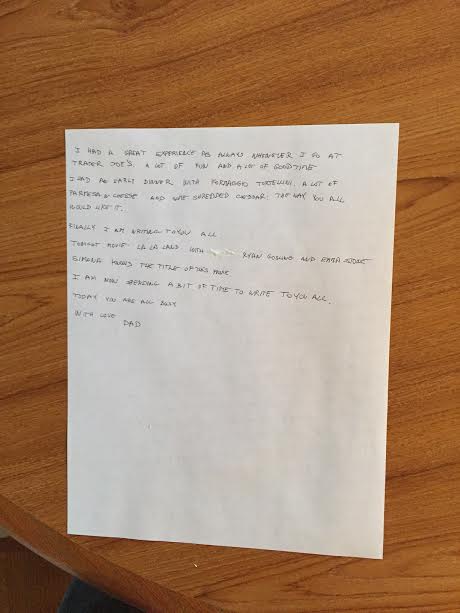 I HAD A GREAT EXPERIENCE AS ALWAYS WHENEVER I GO AT
TRADER JOE'S, A LOT OF FUN AND A LOT OF GOODTIME
I HAD AN EARLY DINNER WITH FORMAGGIO TORTELLINI, A LOT OF
PARMESAN CHEESE AND SOME SHREDDED CHEDDAR. THE WAY YOU ALL
WOULD LIKE IT.
FINALLY I AM WRITING TO YOU ALL
TONIGHT MOVIE: LA LA LAND WITH RYAN GOSLING AND EMMA STONE
SIMONA KNOWS THE TITLE OF THIS MOVIE
I AM NOW SPENDING A BIT OF TIME TO WRITE TO YOU ALL.
TODAY YOU ARE ALL BUSY
WITH LOVE
DAD